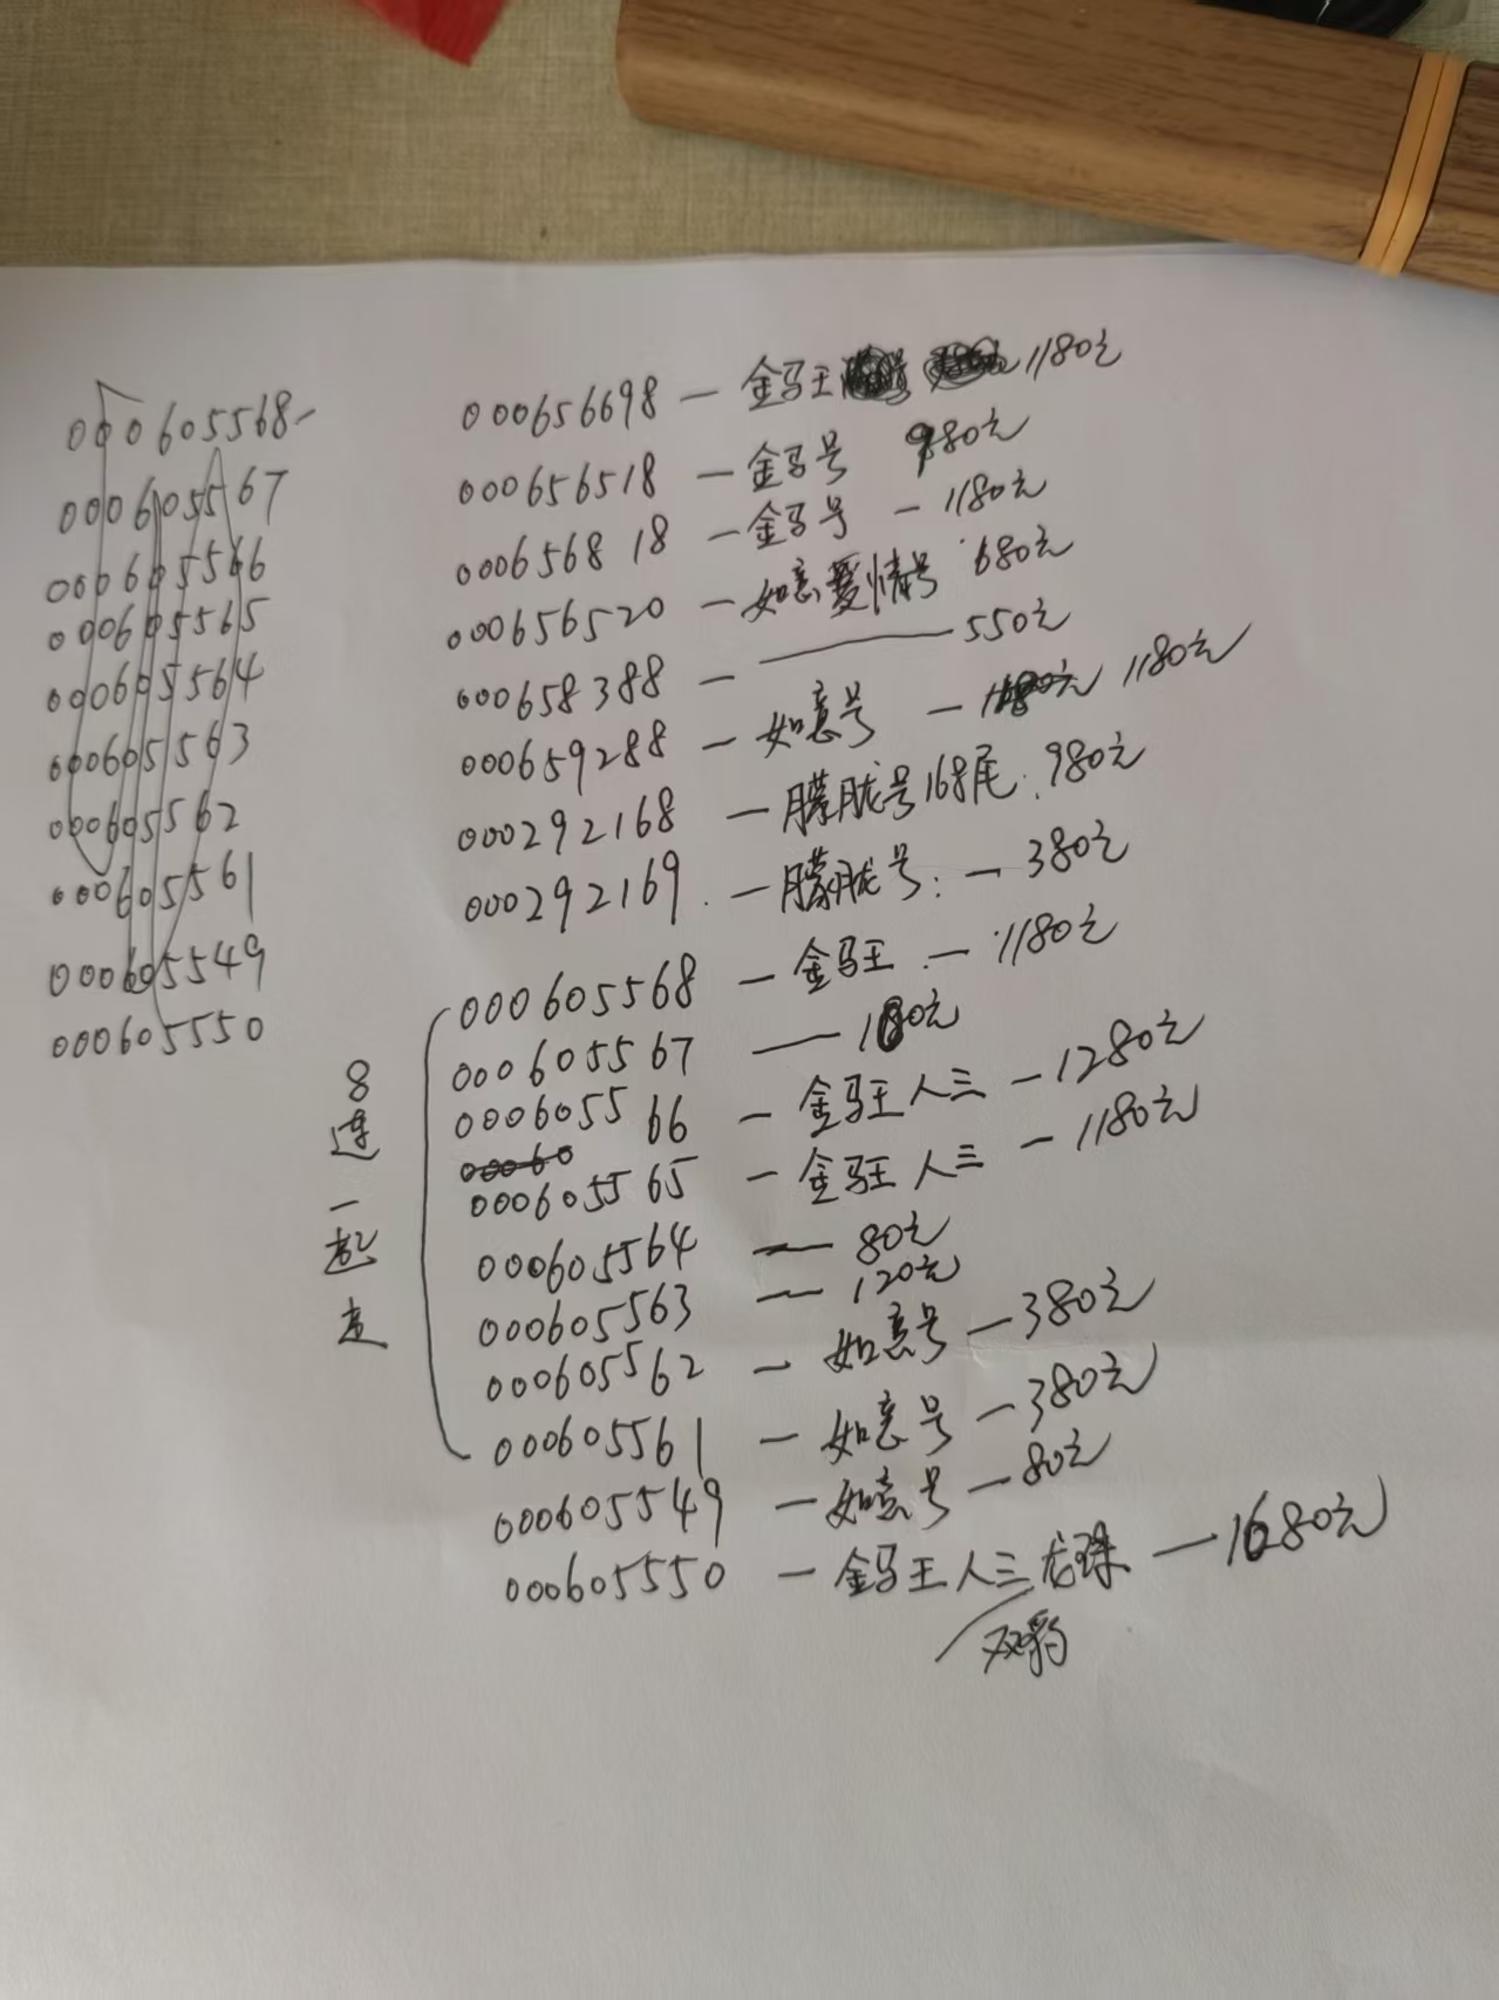 000605568-
000605567
000605566
000605565
000605564
000605563
000605562
000605561
000605549
000605550
000656698 — 金马王 1180元
000656518 — 金马号 980元
000656818 — 金马号 — 1180元
000656520 — 如意爱情号 680元
000658388 — —— 550元
000659288 — 如意号 — 1180元
000292168 — 朦胧号168尾: 980元
000292169. — 朦胧号: — 380元
8连一起走
000605568 — 金马王 — 1180元
000605567 —— 180元
000605566 — 金马王人三 — 1280元
000605565 — 金马王人三 — 1180元
000605564 — 80元
000605563 — 120元
000605562 — 如意号 — 380元
000605561 — 如意号 — 380元
000605549 — 如意号 — 80元
000605550 — 金马王人三龙珠 — 1680元
双豹